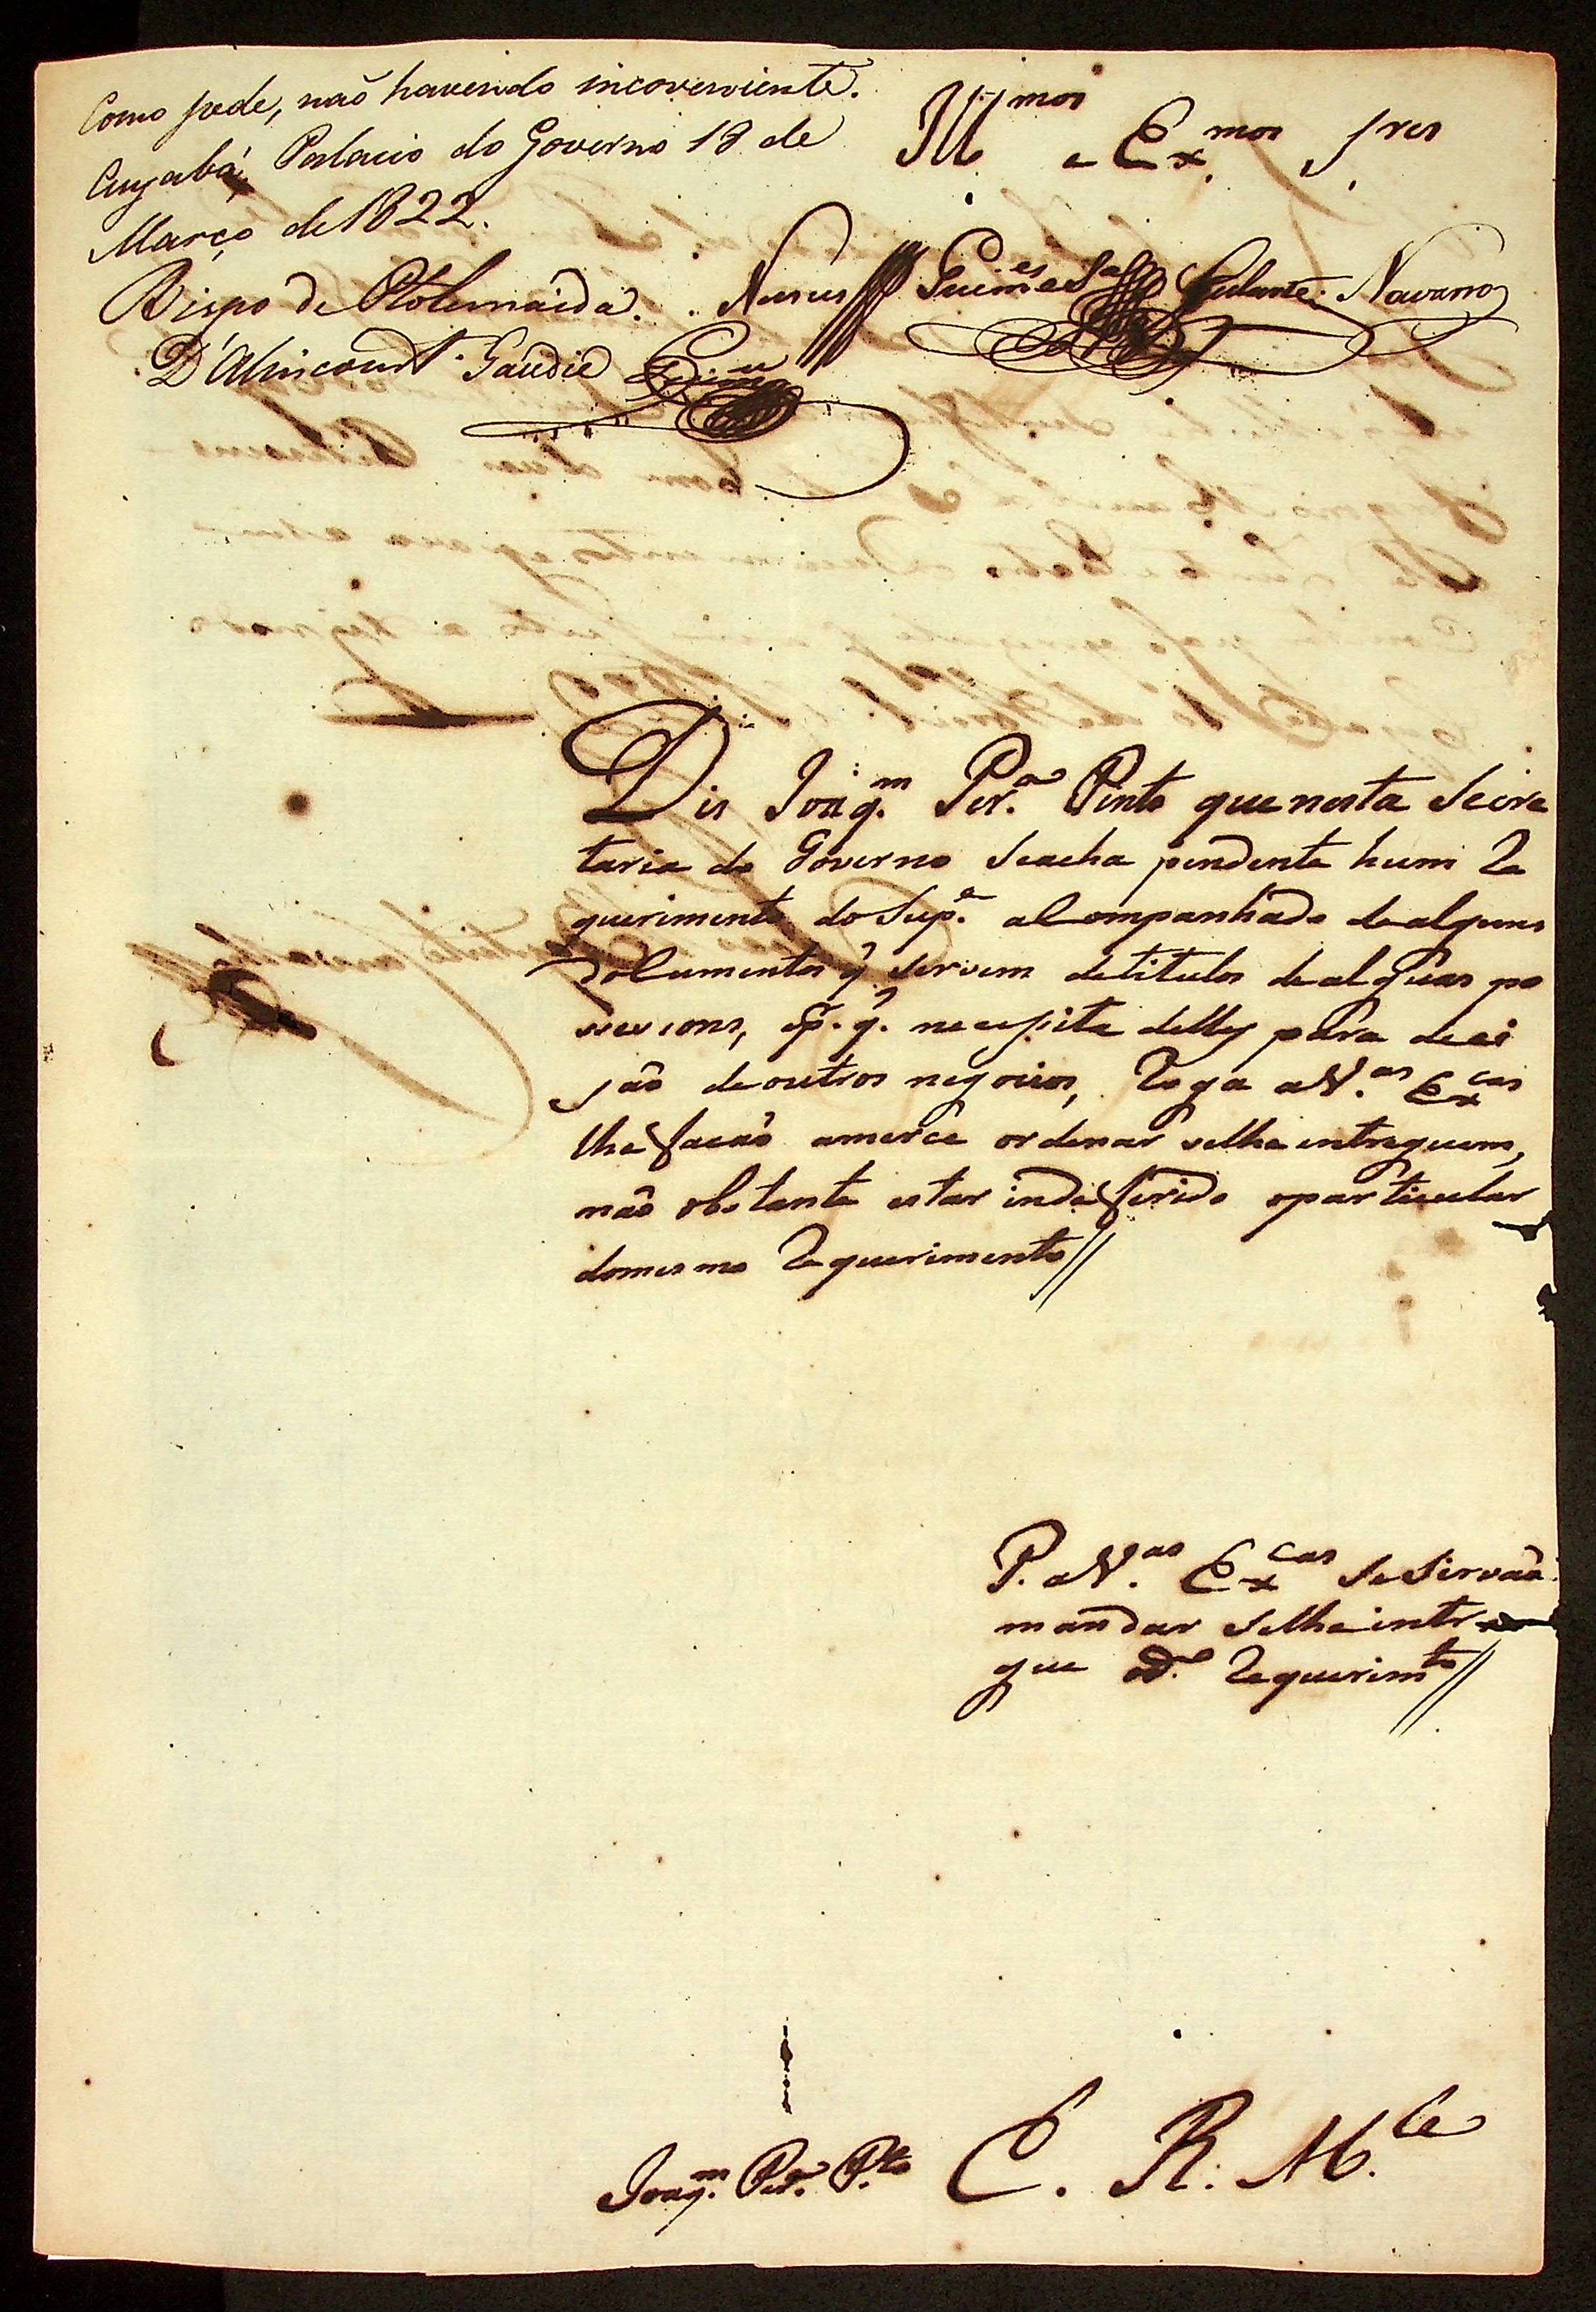 Como pede, naõ havendo incoveniente.
Cuyabá Palacio do Governo 18 de
Março de 1822.
Bispo de Ptolemaida. Nunes Guim.es Sa Gularte. Navarro
D'Alincourt. Gaudie
Ill.mos e Ex.mos Sres
Dis Joaq.m Per.a Pinto que nesta Secre
taria do Governo seacha pendente hum Re
querimento do Sup.e acompanhado dealguns
documentos q̃ servem detitulos dealguas po
ssesions, e p.q. necessita delles para deci
saõ deoutros negocios, Roga aV.as Ex.cas
lhe facaõ amerce ordenar selhe entreguem,
naõ obstante estar indeferido oparticular
domesmo Requerimento//
P. aV.as Ex.cas seSirvaõ
mandar selhe entre
gue od.o Requerim.to//
E. R. M.ce
Joaq.m Per.a P.to